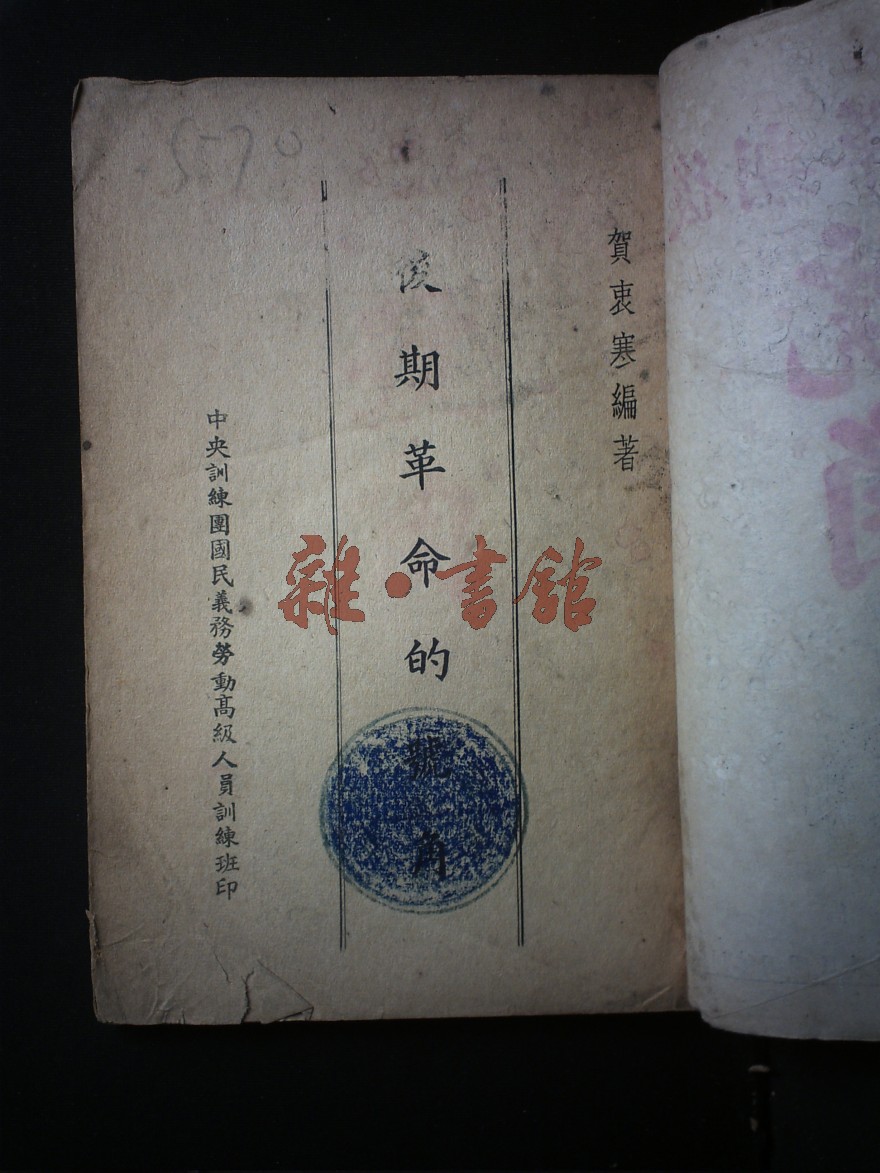 賀衷寒編著
後期革命的號角
中央訓練團國民義務勞動高級人員訓練班印
雜·書館
5-70